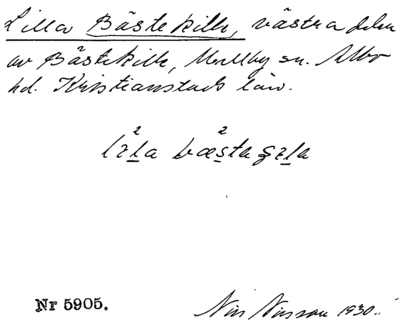 Lilla Bästekille, västra delen
av Bästekille, Mellby sn. Albo
hd. Kristianstads län.
Nr 5905.
Nils Nilsson 1930.